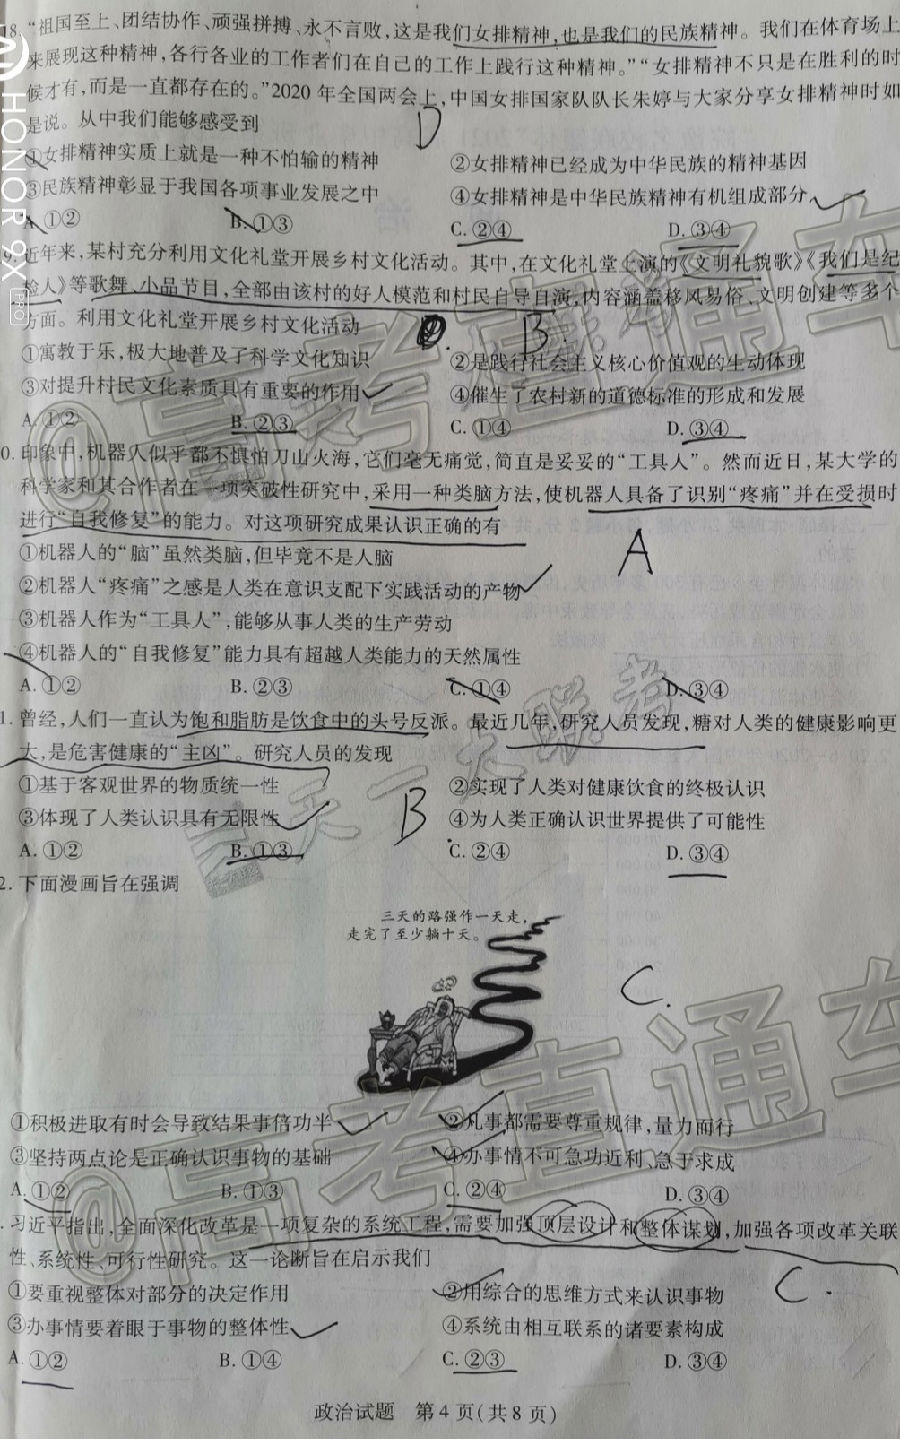 8.“祖国至上、团结协作、顽强拼搏、永不言败,这是我们女排精神,也是我们的民族精神。我们在体育场上
来展现这种精神,各行各业的工作者们在自己的工作上践行这种精神。”“女排精神不只是在胜利的时
候才有,而是一直都存在的。”2020年全国两会上,中国女排国家队队长朱婷与大家分享女排精神时如
是说。从中我们能够感受到
D
①女排精神实质上就是一种不怕输的精神 ②女排精神已经成为中华民族的精神基因
③民族精神彰显于我国各项事业发展之中 ④女排精神是中华民族精神有机组成部分
A.①② B.①③ C.②④ D.③④
9.近年来,某村充分利用文化礼堂开展乡村文化活动。其中,在文化礼堂上演的《文明礼貌歌》《我们是纪
检人》等歌舞、小品节目,全部由该村的好人模范和村民自导自演,内容涵盖移风易俗、文明创建等多个
方面。利用文化礼堂开展乡村文化活动
B.
①寓教于乐,极大地普及了科学文化知识 ②是践行社会主义核心价值观的生动体现
③对提升村民文化素质具有重要的作用 ④催生了农村新的道德标准的形成和发展
A.①② B.②③ C.①④ D.③④
0.印象中,机器人似乎都不惧怕刀山火海,它们毫无痛觉,简直是妥妥的“工具人”。然而近日,某大学的
科学家和其合作者在一项突破性研究中,采用一种类脑方法,使机器人具备了识别“疼痛”并在受损时
进行“自我修复”的能力。对这项研究成果认识正确的有
A
①机器人的“脑”虽然类脑,但毕竟不是人脑
②机器人“疼痛”之感是人类在意识支配下实践活动的产物
③机器人作为“工具人”,能够从事人类的生产劳动
④机器人的“自我修复”能力具有超越人类能力的天然属性
A.①② B.②③ C.①④ D.③④
1.曾经,人们一直认为饱和脂肪是饮食中的头号反派。最近几年,研究人员发现,糖对人类的健康影响更
大,是危害健康的“主凶”。研究人员的发现
①基于客观世界的物质统一性 ②实现了人类对健康饮食的终极认识
③体现了人类认识具有无限性 ④为人类正确认识世界提供了可能性
B
A.①② B.①③ C.②④ D.③④
2.下面漫画旨在强调
三天的路强作一天走,
走完了至少躺十天。
C.
①积极进取有时会导致结果事倍功半 ②凡事都需要尊重规律,量力而行
③坚持两点论是正确认识事物的基础 ④办事情不可急功近利、急于求成
A.①② B.①③ C.②④ D.③④
.习近平指出,全面深化改革是一项复杂的系统工程,需要加强顶层设计和整体谋划,加强各项改革关联
性、系统性、可行性研究。这一论断旨在启示我们
C.
①要重视整体对部分的决定作用 ②用综合的思维方式来认识事物
③办事情要着眼于事物的整体性 ④系统由相互联系的诸要素构成
A.①② B.①④ C.②③ D.③④
政治试题 第4页(共8页)
HONOR 9X PRO
@高考直通车
天一大联考
@高考直通车